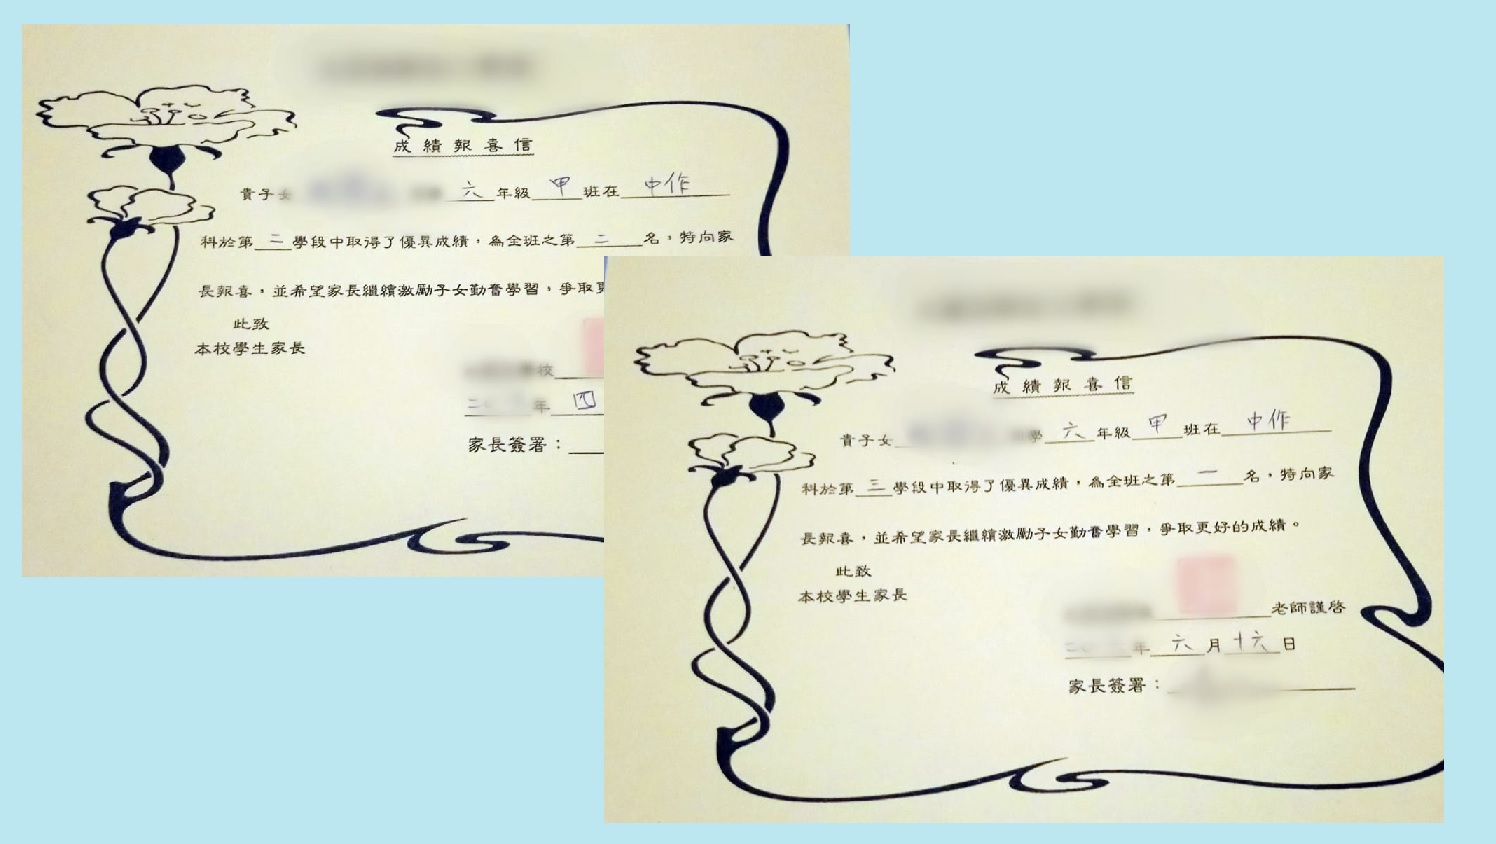 成績報喜信
貴子女 六年級 甲 班在 中作
科於第 二 學段中取得了優異成績，為全班之第 二 名，特向家
長報喜，並希望家長繼續激勵子女勤奮學習，爭取更
此致
本校學生家長
校
年 四
家長簽署：
成績報喜信
貴子女 同學 六 年級 甲 班在 中作
科於第 三 學段中取得了優異成績，為全班之第 一 名，特向家
長報喜，並希望家長繼續激勵子女勤奮學習，爭取更好的成績。
此致
本校學生家長
老師謹啓
年 六 月 十六 日
家長簽署：